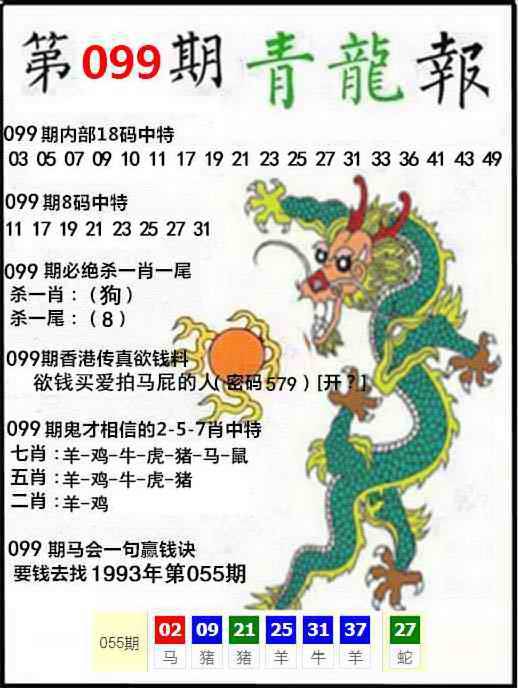 第099期 青龍報
099期内部18码中特
03 05 07 09 10 11 17 19 21 23 25 27 31 33 36 41 43 49
099期8码中特
11 17 19 21 23 25 27 31
099 期必绝杀一肖一尾
杀一肖：（狗）
杀一尾：（8）
099期香港传真欲钱料
欲钱买爱拍马屁的人(密码579）[开？]
099期鬼才相信的2-5-7肖中特
七肖：羊-鸡-牛-虎-猪-马-鼠
五肖：羊-鸡-牛-虎-猪
二肖：羊-鸡
099 期马会一句赢钱诀
要钱去找1993年第055期
055期 02 09 21 25 31 37 27
马 猪 猪 羊 牛 羊 蛇